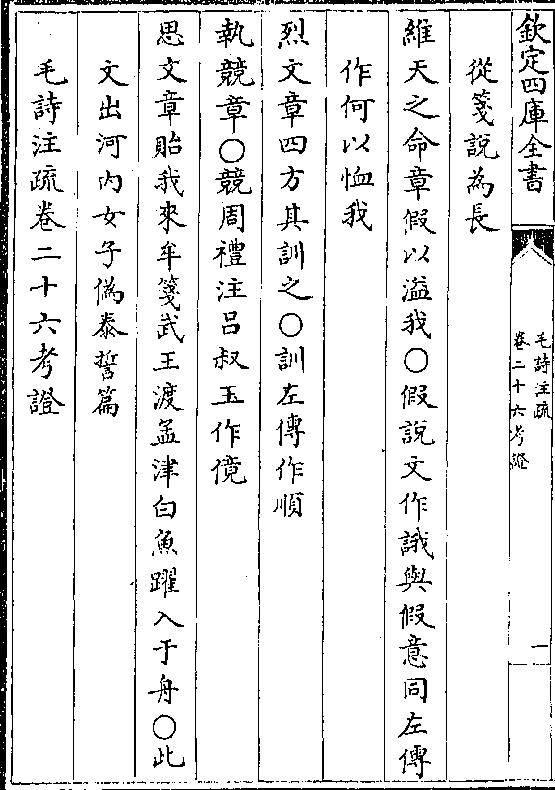 欽定四庫全書
毛詩注疏
卷二十六考證
一
從箋說為長
維天之命章假以溢我〇假說文作誐與假意同左傳
作何以恤我
烈文章四方其訓之〇訓左傳作順
執競章〇競周禮注吕叔玉作傹
思文章貽我來牟箋武王渡孟津白魚躍入于舟〇此
文出河内女子偽泰誓篇
毛詩注疏卷二十六考證